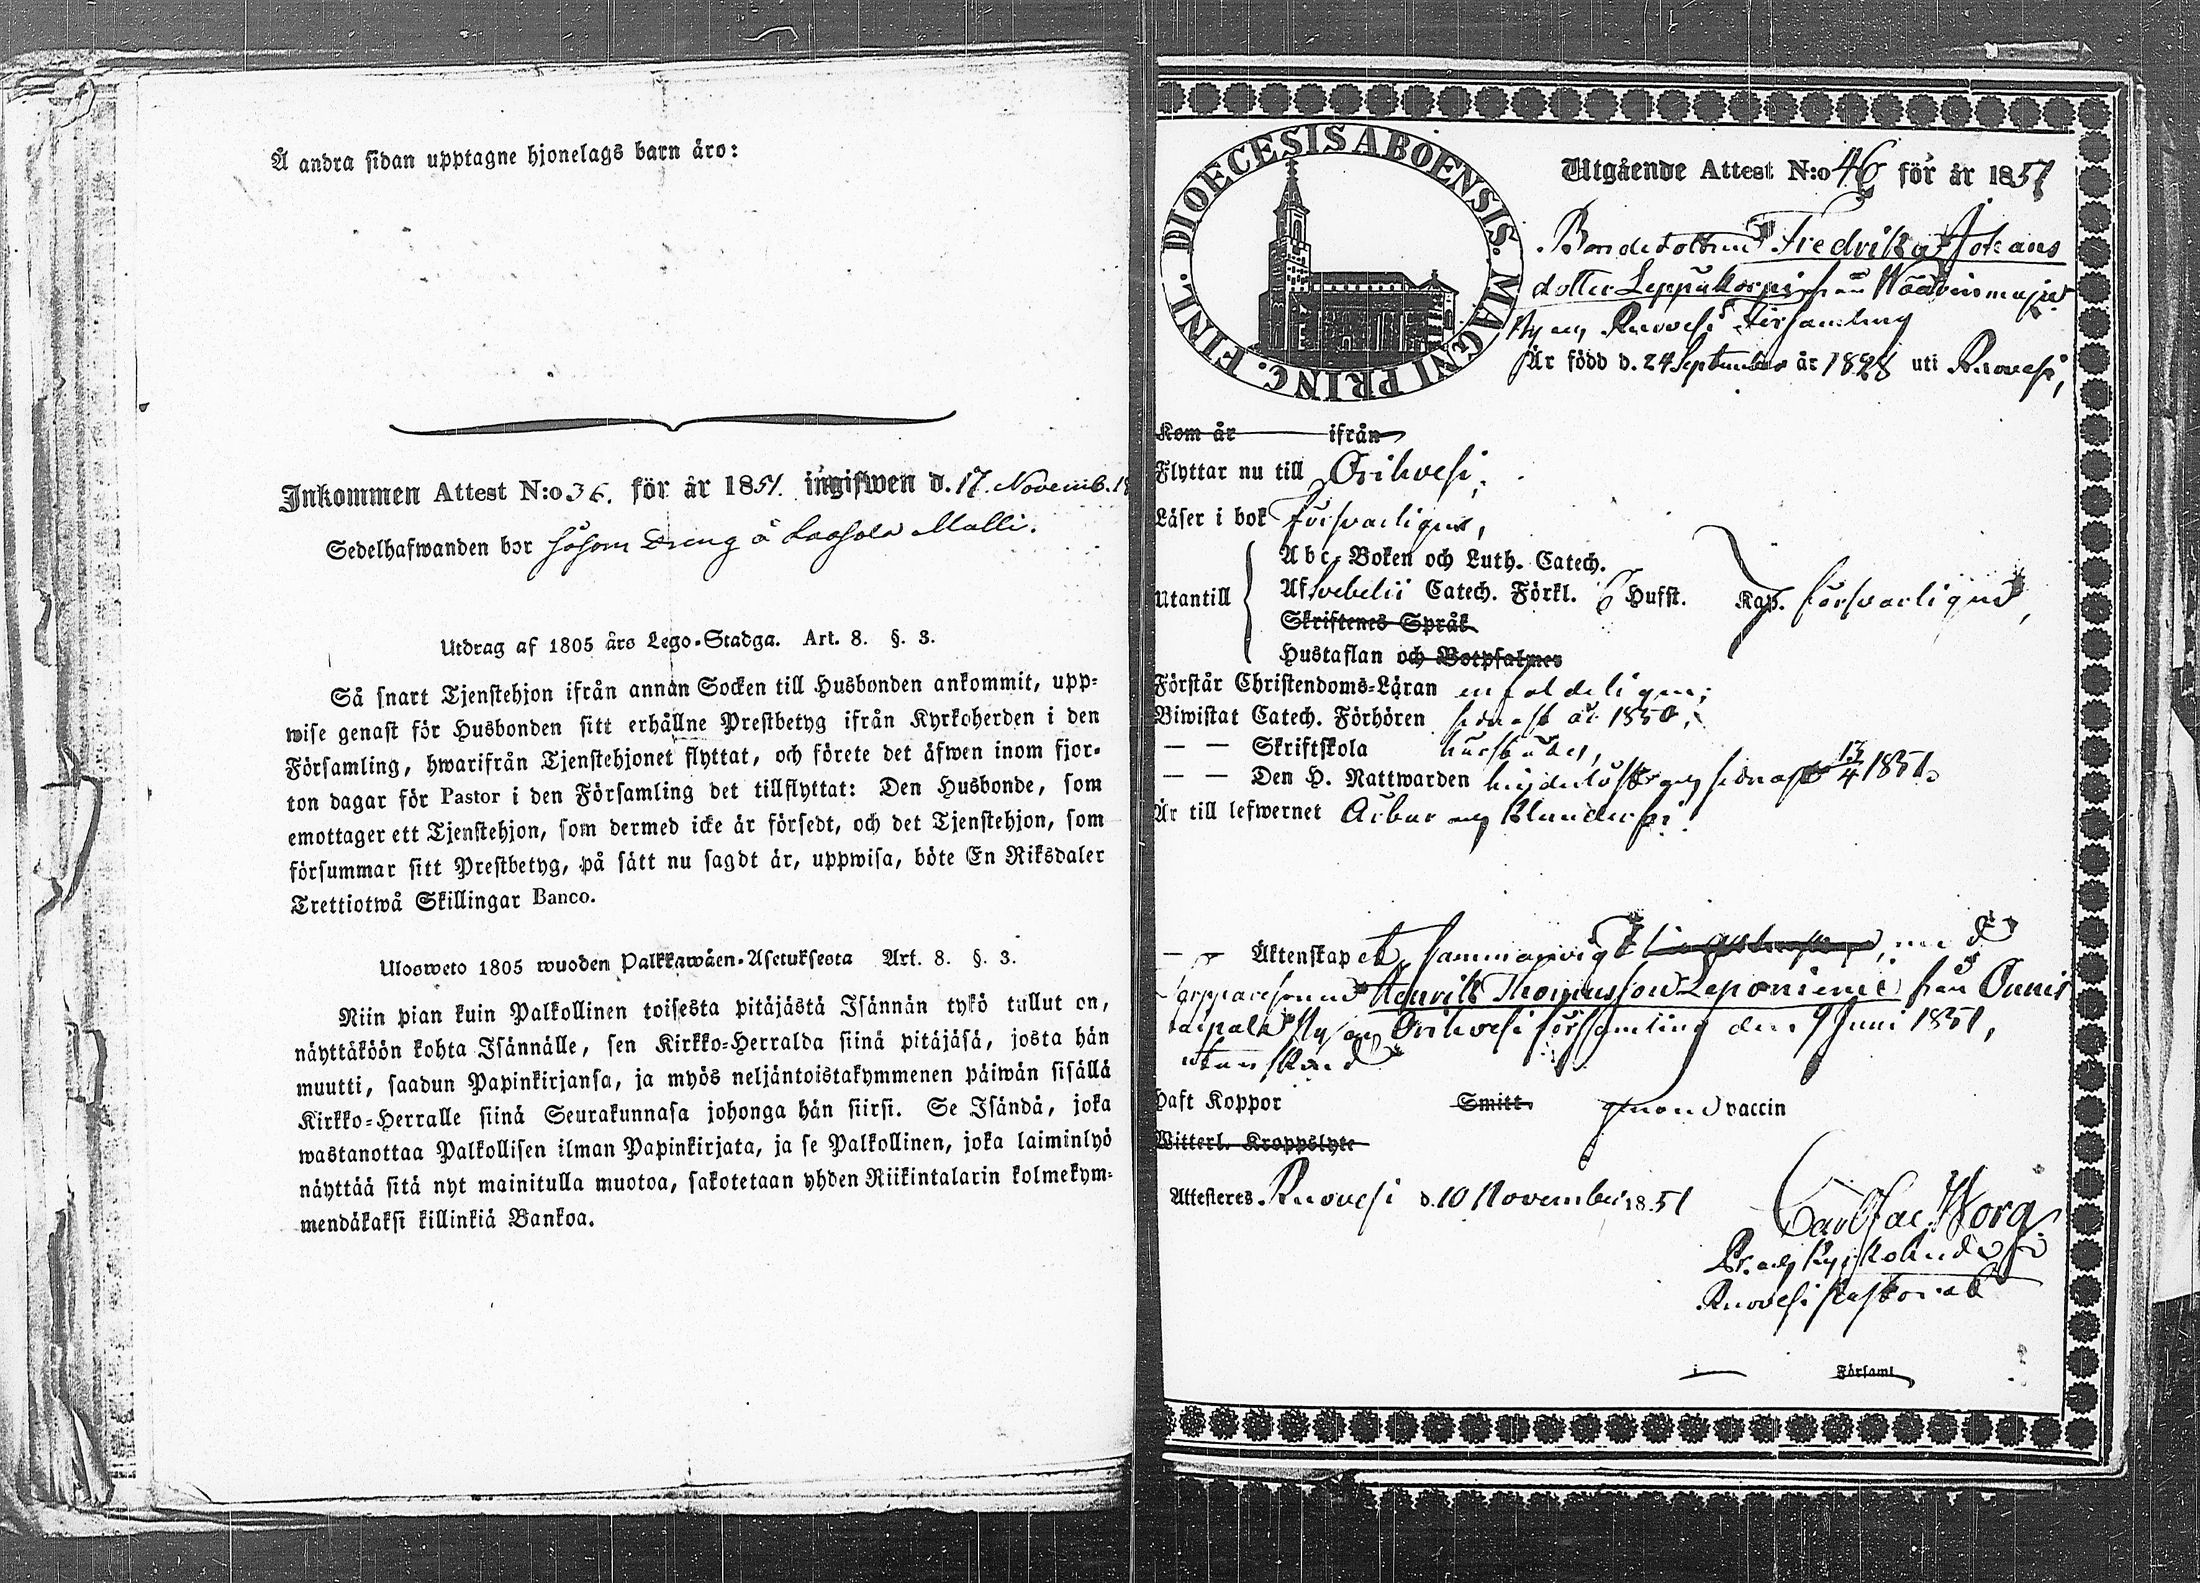 Å andra sidan upptagne hjonelags barn äro:
Inkommen Attest N:o 36. för år 1851. ingifwen d. 17. Novemb. 18
Sedelhafwanden bor såsom Dreng å Laasola Malli.
Utdrag af 1805 års Lego-Stadga. Art. 8. §. 3.
Så snart Tjenstehjon ifrån annan Socken till Husbonden ankommit, upp-
wise genast för Husbonden sitt erhållne Prestbetyg ifrån Kyrkoherden i den
Församling, hwarifrån Tjenstehjonet flyttat, och förete det äfwen inom fjor-
ton dagar för Pastor i den Församling det tillflyttat: Den Husbonde, som
emottager ett Tjenstehjon, som dermed icke är försedt, och det Tjenstehjon, som
försummar sitt Prestbetyg, på sätt nu sagdt är, uppwisa, böte En Riksdaler
Trettiotwå Skillingar Banco.
Ulosweto 1805 wuoden Palkkawäen-Asetuksesta Art. 8. §. 3.
Niin pian kuin Palkollinen toisesta pitäjästä Isännän tykö tullut on,
näyttäköön kohta Isännälle, sen Kirkko-Herralda siinä pitäjäsä, josta hän
muutti, saadun Papinkirjansa, ja myös neljäntoistakymmenen päiwän sisällä
Kirkko-Herralle siinä Seurakunnasa johonga hän siirsi. Se Isändä, joka
wastanottaa Palkollisen ilman Papinkirjata, ja se Palkollinen, joka laiminlyö
näyttää sitä nyt mainitulla muotoa, sakotetaan yhden Riikintalarin kolmekym-
mendäkaksi killinkiä Bankoa.
DIOECESIS ABOENSIS. MAGNI PRINC. FINL.
Utgående Attest N:o 46 för år 1851
Bondedottren Fredrika Johans
dotter Leppäkorpi från Wäärinmaja
by og Ruovesi församling
Är född d. 24 September år 1828 uti Ruovesi,
Kom år ifrån
Flyttar nu till Orihvesi,
Läser i bok försvarligen,
Utantill
Abc-Boken och Luth. Catech.
Af Svebelii Catech. Förkl. 6 Hufst. Kap. försvarligen,
Skriftenes Språk
Hustaflan och Botpsalmes
Förstår Christendoms-Läran enfaldeligen;
Biwistat Catech. Förhören sednast år 1850,
— — Skriftskola
— — Den H. Nattwarden sednast 13/4 1851.
Är till lefwernet Ärbar
— — Äktenskapet, sammanvigd med
Torpparesonen Henrik Thomasson Leponiemi från Onnis
taipale by og Orihvesi församling den 9 Juni 1851,
Haft Koppor Smitt. genom vaccin
Witterl. Kroppslyte
Attesteres Ruovesi d. 10 November 1851
Carl Jac. Worg
Pr. och Kyrkoherde
Ruovesi Pastorat
i Församl